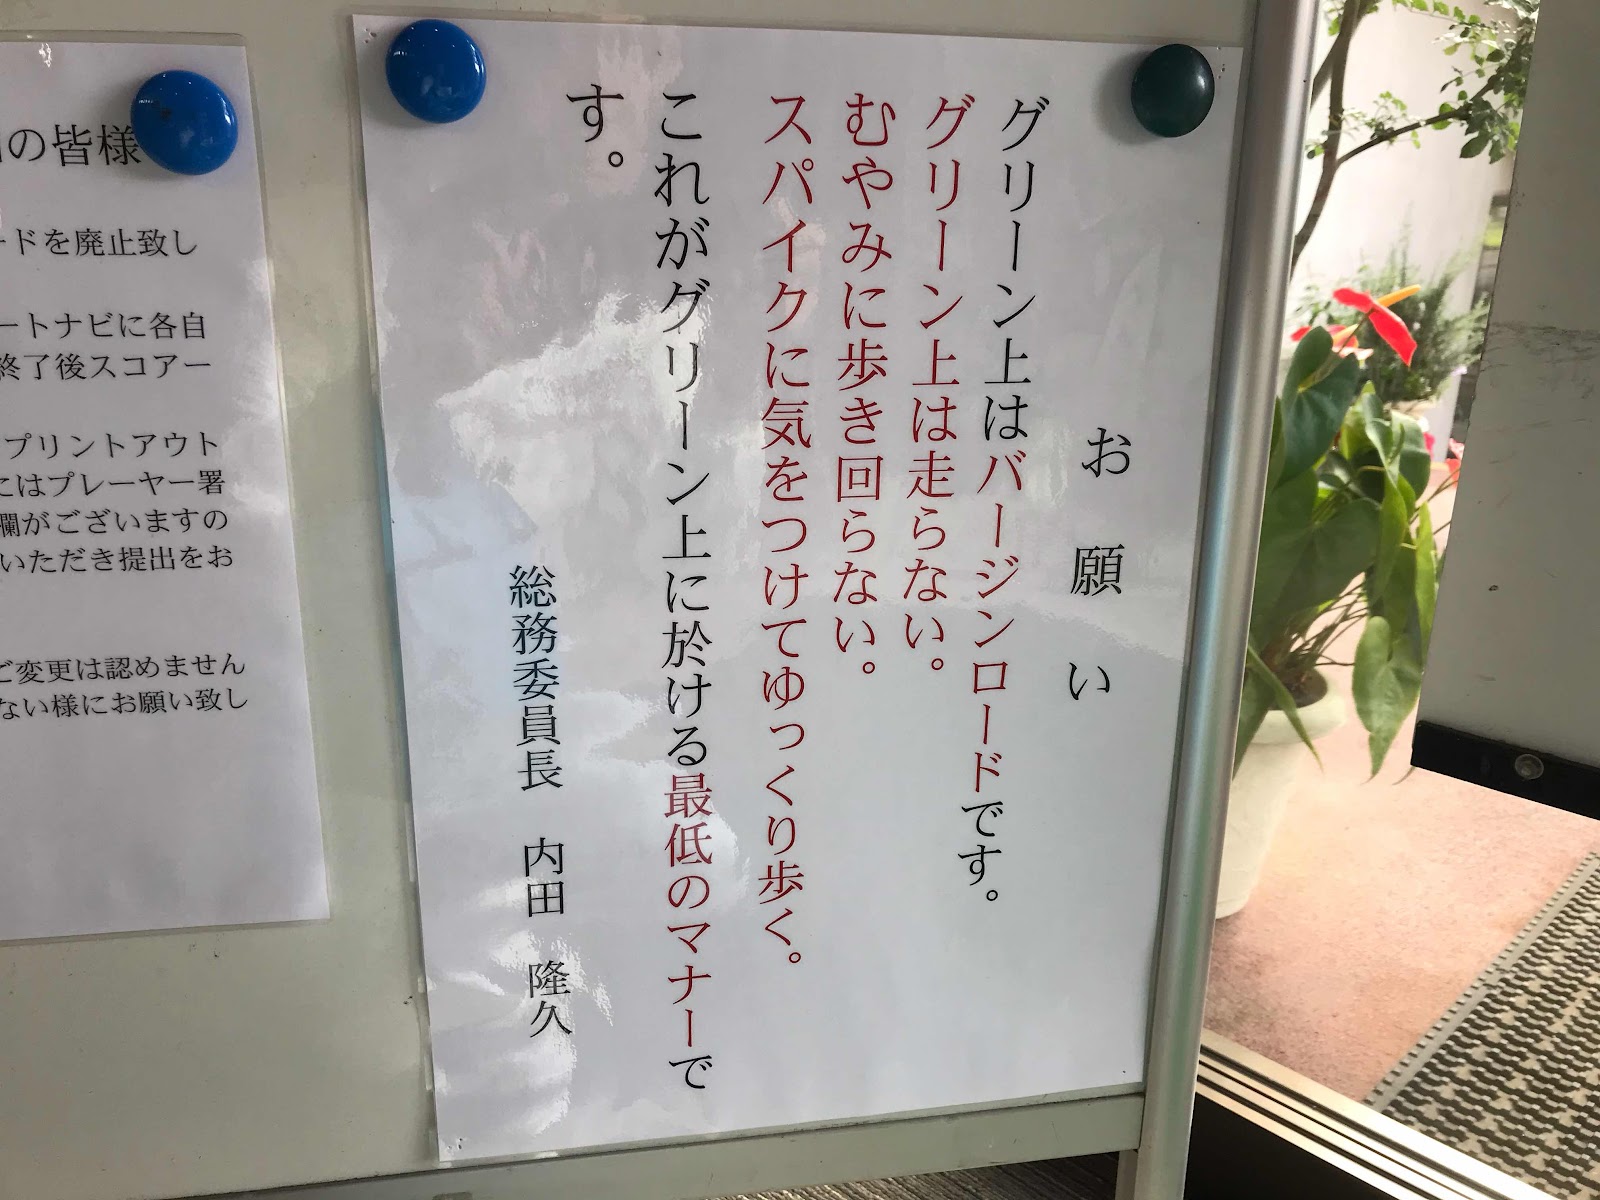 お願い
グリーン上はバージンロードです。
グリーン上は走らない。
むやみに歩き回らない。
スパイクに気をつけてゆっくり歩く。
これがグリーン上に於ける最低のマナーで
す。
総務委員長 内田 隆久
の皆様
ードを廃止致し
ートナビに各自
終了後スコアー
プリントアウト
にはプレーヤー署
欄がございますの
いただき提出をお
ご変更は認めません
ない様にお願い致し